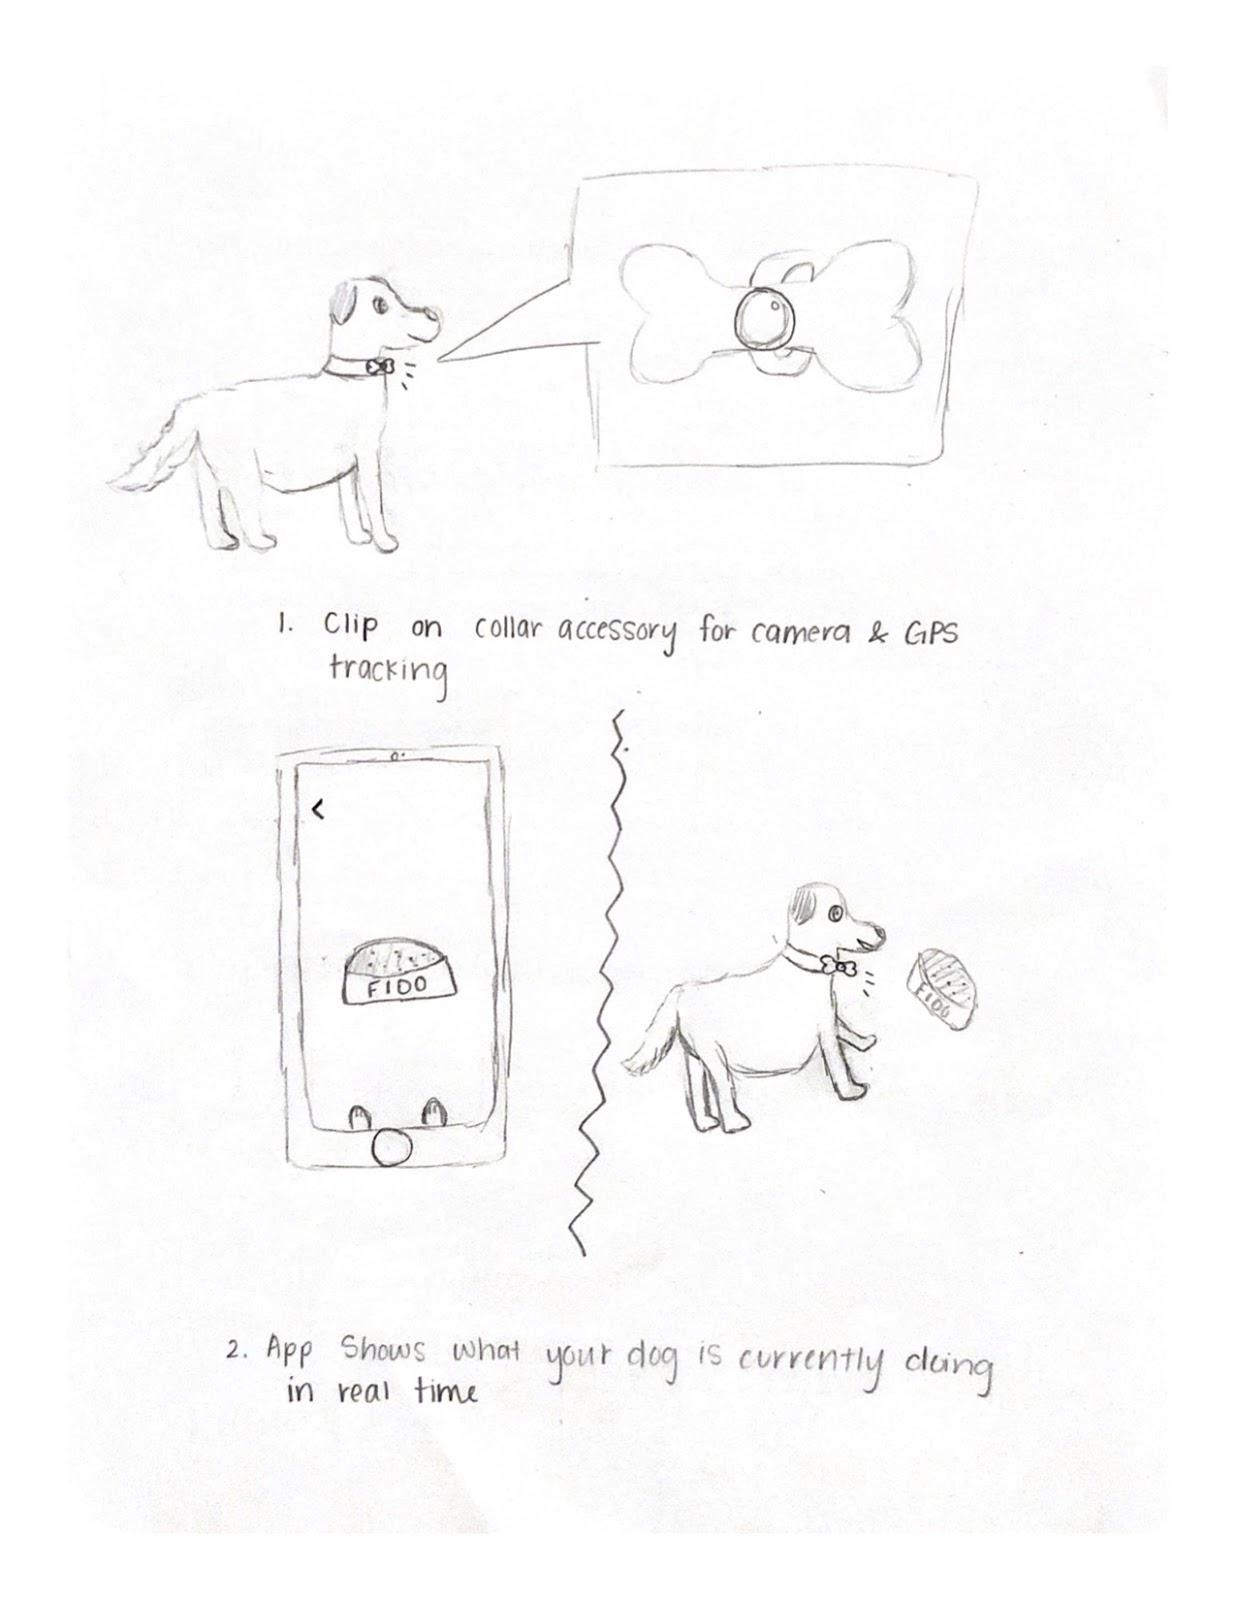 1. Clip on collar accessory for camera & GPS
tracking
<
FIDO
FIDO
2. App Shows what your dog is currently doing
in real time